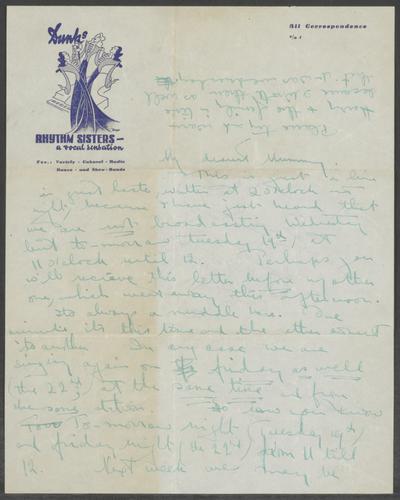 All Correspondence
c/o :
Dunks
RHYTHM SISTERS —
a vocal sensation
For : Variety - Cabaret - Radio
Dance - and Show-Bands
My dearest Mummy.
This is just a line
in great haste written at 2 o'clock in
because I have just heard that
we are not broadcasting Wednesday
but to-morrow Tuesday 19th, at
11 o'clock until 12. Perhaps you
will recieve this letter before my other
one, which went away this afternoon.
Its always a muddle here. One
minute its this time and the other
its another In any case we are
singing again on friday as well
(the 22nd) at the same time and from
the same station. So now you know
To-morrow night (Tuesday 19th)
and friday night (the 22nd) from 11 till
12. Next week we may be